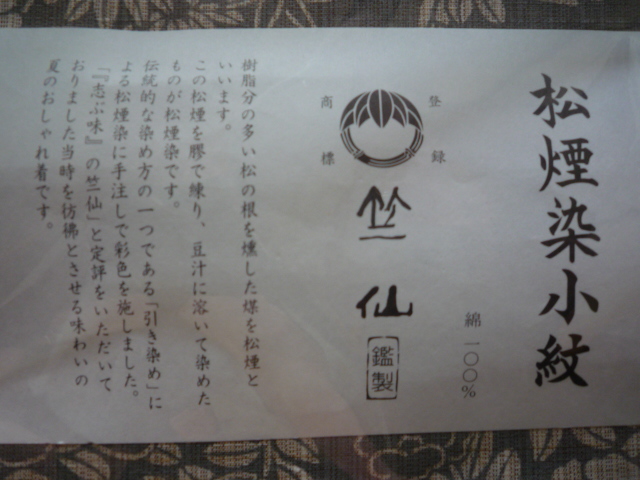 松煙染小紋
綿一〇〇%
登録
商標
竺仙
鑑製
樹脂分の多い松の根を燻した煤を松煙と
いいます。
この松煙を膠で練り、豆汁に溶いて染めた
ものが松煙染です。
伝統的な染め方の一つである「引き染め」に
よる松煙染に手注しで彩色を施しました。
「『志ぶ味』の竺仙」と定評をいただいて
おりました当時を彷彿とさせる味わいの
夏のおしゃれ着です。